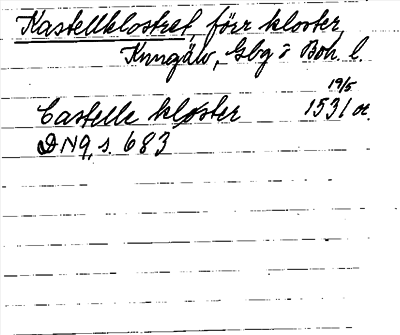 Kastellklostret, förr kloster
Kungälv, Gbg o Boh. l.
19/5
Castelle kloster 1531 or.
DN 9, s. 683